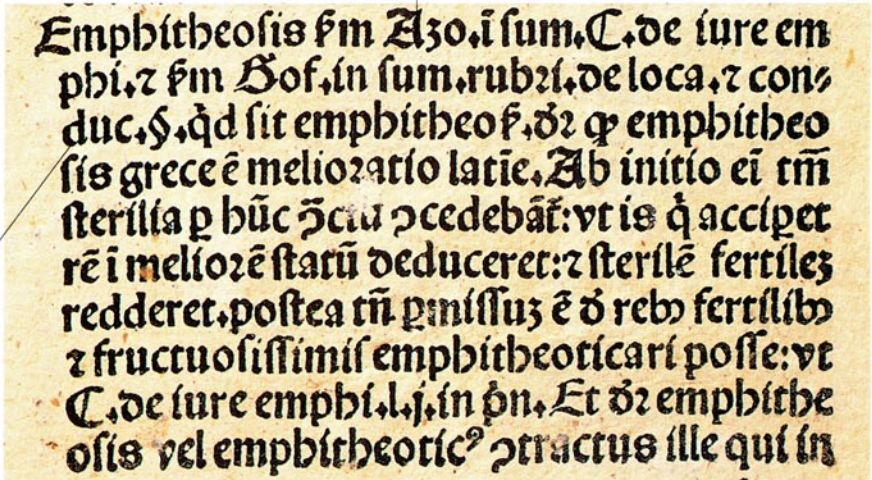 Emphitheoſis ẜm Azo.ī ſum.C.de iure em
phi.⁊ ẜm Gof.in ſum.rubꝛi.de loca.⁊ con⸗
duc.§.q̇d ſit emphitheoẜ.dꝛ ꝙ emphitheo
ſis grece ē melioꝛatio latīe.Ab initio eī tm̄
ſterilia ꝑ hūc ↄ̄ctū ↄcedebāt̄:vt is q̇ accipet
rē ī melioꝛē ſtatū deduceret:⁊ ſterilē fertileꝫ
redderet.poſtea tn̄ ꝑmiſſuꝫ ē d̄ rebꝰ fertilibꝰ
⁊ fructuoſiſſimiſ emphitheoticari poſſe:vt
C.de iure emphi.l.j.in pͥn.Et dꝛ emphithe
oſis vel emphitheoticꝰ ↄtractus ille qui in